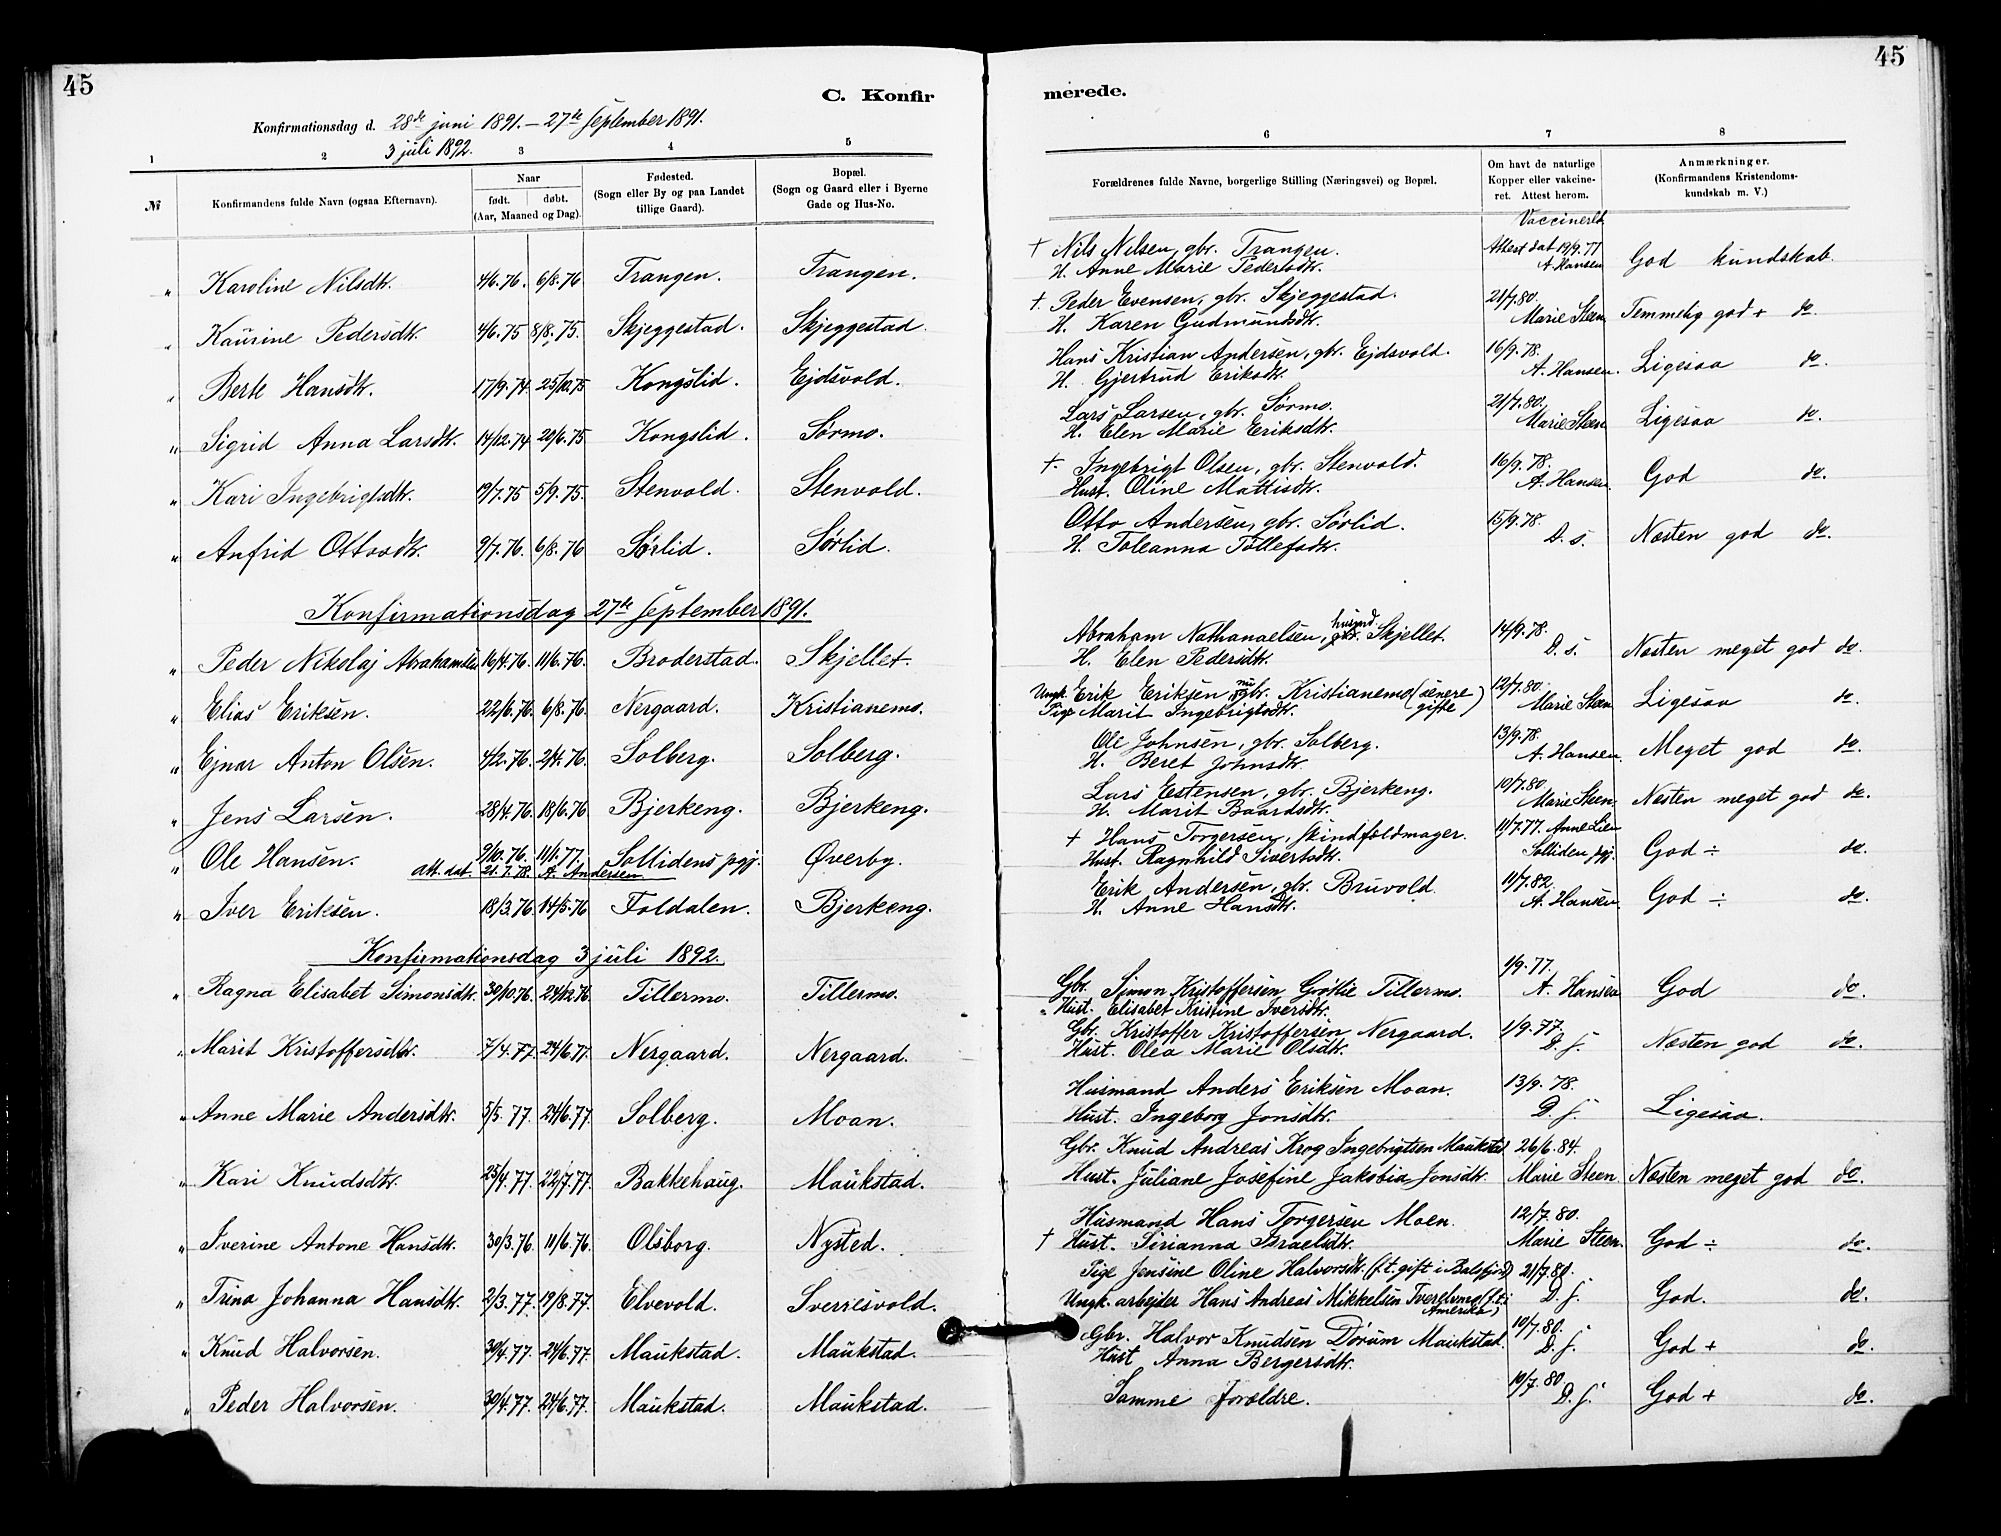 45
45
C. Konfir
merede.
Konfirmationsdag d. 28de juni 1891. - 27de September 1891.
3 juli 1892.
1 2 3 4 5 6 7 8
№ Konfirmandens fulde Navn (ogsaa Efternavn). Naar født. døbt. (Aar, Maaned og Dag). Fødested. (Sogn eller By og paa Landet tillige Gaard). Bopæl. (Sogn og Gaard eller i Byerne Gade og Hus-No. Forældrenes fulde Navne, borgerlige Stilling (Næringsvei) og Bopæl. Om havt de naturlige Kopper eller vakcineret. Attest herom. Anmærkninger. (Konfirmandens Kristendomskundskab m. V.)
Vaccineret
" Karoline Nilsdtr. 4/6.76. 6/8.76 Trangen. Trangen. † Nils Nilsen, gbr. Trangen. Attest dat 19/9.77
H. Anne Marie Pedersdtr. A Hansen God kundskab.
" Kaurine Pedersdtr. 4/6.75 8/8.75. Skjeggestad. Skjeggestad. †. Peder Evensen, gbr. Skjeggestad. 21/7.80.
H. Karen Gudmundsdtr. Marie Steen Temmelig god + do.
" Berte Hansdtr. 17/9.74. 25/10.75 Kongslid. Ejdsvold. Hans Kristian Andersen, gbr. Ejdsvold. 16/9.78.
H. Gjertrud Eriksdtr. A. Hansen. Ligesaa do.
" Sigrid Anna Larsdtr. 14/12.74 20/6.75 Kongslid. Sørmo. Lars Larsen, gbr. Sørmo. 21/7.80.
H. Elen Marie Eriksdtr. Marie Steen Ligesaa do.
" Kari Ingebrigtsdtr. 19/7.75 5/9.75. Stenvold. Stenvold. †. Ingebrigt Olsen, gbr. Stenvold. 16/9.78.
Hust. Oline Mattisdtr. A. Hansen. God do.
" Anfrid Ottosdtr. 9/7.76. 6/8.76 Sørlid. Sørlid. Otto Andersen, gbr. Sørlid. 15/9.78.
H. Toleanna Tollefsdtr. D. s. Næsten god do.
Konfirmationsdag 27de September 1891.
" Peder Nikolaj Abrahamsen 16/4.76. 11/6.76. Broderstad. Skjellet. Abraham Nathanaelsen, husmd. Skjellet. 14/9.78.
H. Elen Pedersdtr. D. s. Næsten meget god do.
" Elias Eriksen. 22/6.76. 6/8.76. Nergaard. Kristianemo. Ungk. Erik Eriksen, nu gbr. Kristianemo (senere 12/7.80.
Pige Marit Ingebrigtsdtr. gifte) Marie Steen Ligesaa do.
" Ejnar Anton Olsen. 4/2.76. 2/4.76. Solberg. Solberg. Ole Johnsen, gbr. Solberg. 13/9.78.
H. Beret Johnsdtr. A. Hansen. Meget god do.
" Jens Larsen. 28/4.76. 18/6.76. Bjerkeng. Bjerkeng. Lars Estensen, gbr. Bjerkeng. 10/7.80
H. Marit Baardsdtr. Marie Steen. Næsten meget god do.
" Ole Hansen. 9/10.76. 11/1.77. Sollidens pgj. Øverby. † Hans Torgersen, Skindfeldmager. 11/7.77. Anne Lien
att. dat. 21.7.78. A. Andersen Hust. Ragnhild Sivertsdtr. Solliden pgj. God ÷ do.
" Iver Eriksen. 18/3.76. 14/5.76 Foldalen. Bjerkeng. Erik Andersen, gbr. Bruvold. 11/7.82.
H. Anne Hansdtr. A. Hansen. God ÷ do.
Konfirmationsdag 3 juli 1892.
" Ragna Elisabet Simonsdtr. 30/10.76. 24/12.76. Tillermo. Tillermo. Gbr. Simon Kristoffersen Grøtlie Tillermo. 1/9.77.
" Hust. Elisabet Kristine Iversdtr. A. Hansen God do.
" Marit Kristoffersdtr. 7/4.77. 24/6.77. Nergaard. Nergaard. Gbr. Kristoffer Kristoffersen Nergaard. 1/9.77.
Hust. Olea Marie Olsdtr. D. s. Næsten god do.
" Anne Marie Andersdtr. 5/5.77. 24/6.77. Solberg. Moan. Husmand Anders Eriksen Moan. 13/9.78.
Hust. Ingeborg Jonsdtr. D. s. Ligesaa.
" Kari Knudsdtr. 25/4.77. 22/7.77. Bakkehaug. Maukstad. Gbr. Knud Andreas Krog Ingebrigtsen Maukstad 26/6.84.
Hust. Juliane Josefine Jakobia Jonsdtr. Marie Steen Næsten meget god do.
" Iverine Antone Hansdtr. 30/3.76. 11/6.76. Olsborg. Nysted. Husmand Hans Torgersen Moen. 12/7.80.
† Hust. Sirianna Israelsdtr. Marie Steen. God ÷ do.
" Trina Johanna Hansdtr. 2/3.77. 19/8.77. Elvevold. Sverresvold. Pige Jensine Oline Halvorsdtr. (f.t. gift i Balsfjord) 21/7.80.
Ungk. arbejder Hans Andreas Mikkelsen Tverelvmo (f.t. i Amerika) D. s. God. do.
" Knud Halvorsen. 30/4.77. 24/6.77. Maukstad. Maukstad. Gbr. Halvor Knudsen Dørum Maukstad. 10/7.80.
Hust Anna Bergersdtr. D. s. God + do.
" Peder Halvorsen. 30/4.77. 24/6.77. Maukstad. Maukstad. Samme Forældre. 10/7.80. D. s. God + do.